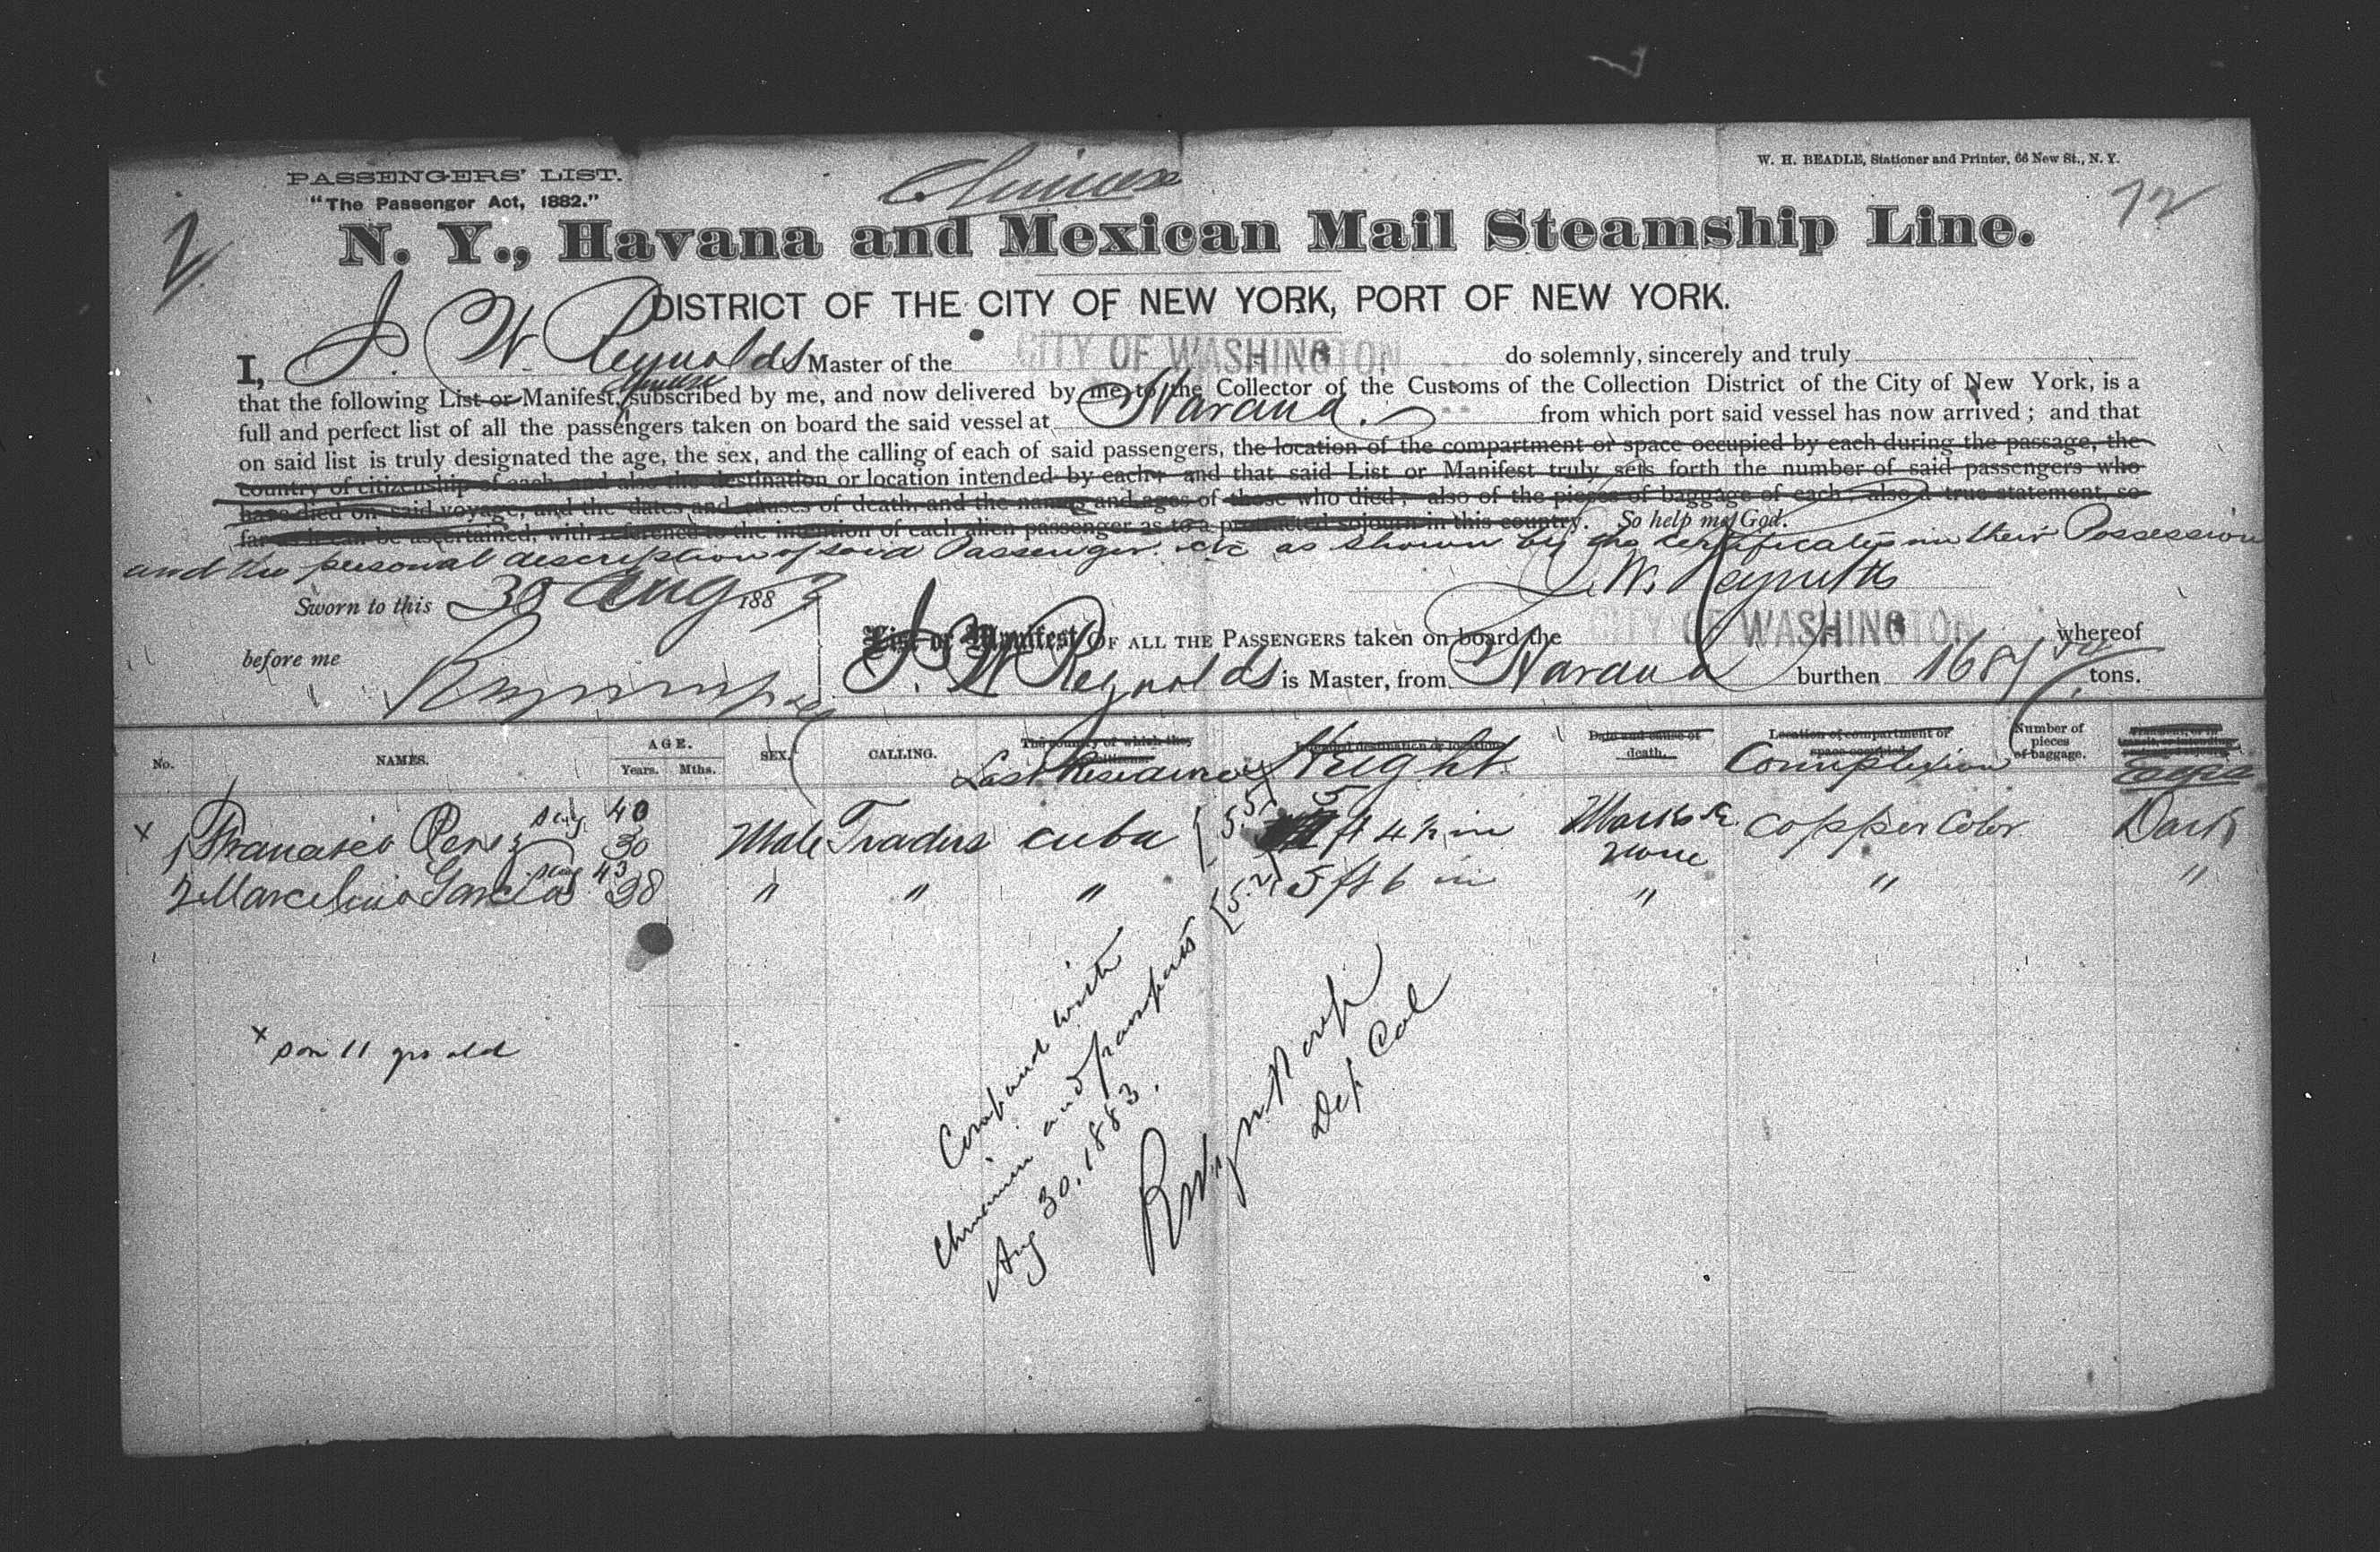 PASSENGERS' LIST.
"The Passenger Act, 1882."
Chinese
W. H. BEADLE, Stationer and Printer, 66 New St., N. Y.
2
72
N. Y., Havana and Mexican Mail Steamship Line.
DISTRICT OF THE CITY OF NEW YORK, PORT OF NEW YORK.
I, J. W. Reynolds Master of the CITY OF WASHINGTON do solemnly, sincerely and truly
that the following List or Manifest, Chinese subscribed by me, and now delivered by me to the Collector of the Customs of the Collection District of the City of New York, is a
full and perfect list of all the passengers taken on board the said vessel at Havana. from which port said vessel has now arrived; and that
on said list is truly designated the age, the sex, and the calling of each of said passengers, the location of the compartment or space occupied by each during the passage, the
country of citizenship of each and also the destination or location intended by each; and that said List or Manifest truly sets forth the number of said passengers who
have died on said voyage, and the dates and causes of death, and the names and ages of those who died; also of the pieces of baggage of each; also a true statement, so
far as it can be ascertained, with reference to the intention of each alien passenger as to a protracted sojourn in this country. So help me God.
and the personal description of said Passenger etc as shown by the certificates in their Possession
J. W. Reynolds
Sworn to this 30 Aug 1883
before me
List or Manifest OF ALL THE PASSENGERS taken on board the CITY OF WASHINGTON whereof
J. W. Reynolds is Master, from Havana burthen 1684 tons.
No. NAMES. AGE. Years. Mths. SEX. CALLING. The country of which they Last Residence Intended destination or location Height Date and cause of death. Location of compartment or space occupied Complexion Number of pieces of baggage. Eyes
x 1 Francisco Perez say 40 30 Male Traders Cuba [5.5] 5 ft 4½ in Marks none copper color Dark
2 Marcelino Garcias say 43 38 " " " [5.2] 5 ft 6 in " " "
x son 11 yrs old
Compared with
Chinamen and passports
Aug 30. 1883.
Dep Col